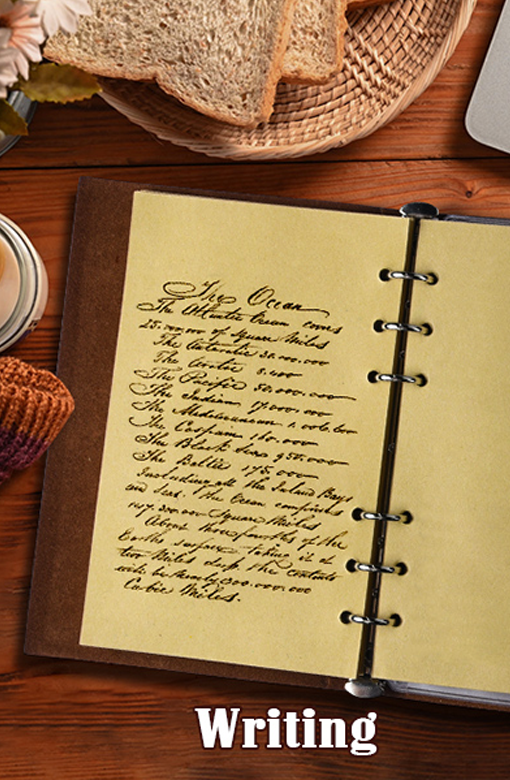 The Ocean
The Atlantic Ocean covers
25.000.000 of Square Miles
The Antarctic 30.000.000
The Arctic 8.400
The Pacific 50.000.000
The Indian 17.000.000
The Mediterranean 1.000.000
The Caspain 160.000
The Black Sea 950.000
The Baltic 175.000
Including all the Inland Bays
and Seas. The Ocean comprises
147.300.000 Square Miles
About three fourths of the
Earths surface. Taking it at
two Miles deep the contents
will be nearly 300.000.000
Cubic Miles.
Writing